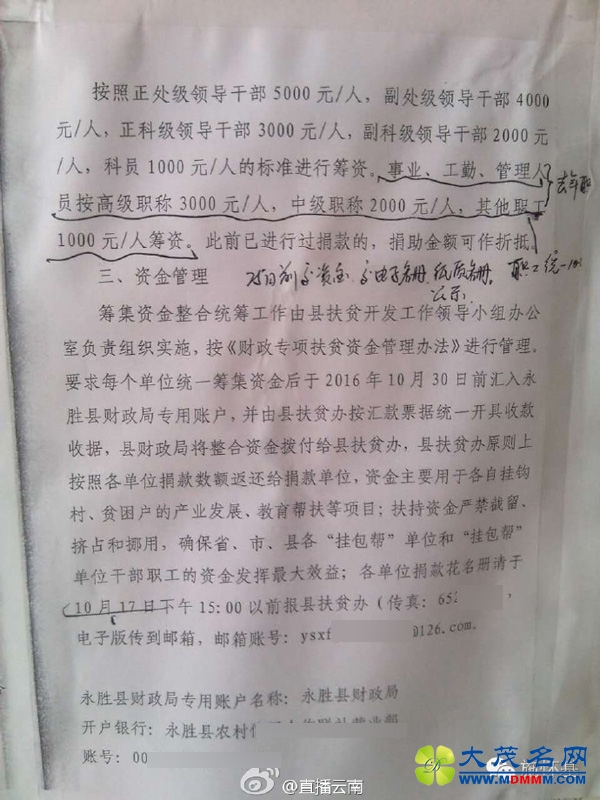 按照正处级领导干部5000元/人，副处级领导干部4000
元/人，正科级领导干部3000元/人，副科级领导干部2000元
/人，科员1000元/人的标准进行筹资。事业、工勤、管理人
员按高级职称3000元/人，中级职称2000元/人，其他职工
1000元/人筹资。此前已进行过捐款的，捐助金额可作折抵。
三、资金管理
25日前交资金 交电子名册 纸质名册
公示
职工统一
筹集资金整合统筹工作由县扶贫开发工作领导小组办公
室负责组织实施，按《财政专项扶贫资金管理办法》进行管理。
要求每个单位统一筹集资金后于2016年10月30日前汇入永
胜县财政局专用账户，并由县扶贫办按汇款票据统一开具收款
收据，县财政局将整合资金拨付给县扶贫办，县扶贫办原则上
按照各单位捐款数额返还给捐款单位，资金主要用于各自挂钩
村、贫困户的产业发展、教育帮扶等项目；扶持资金严禁截留、
挤占和挪用，确保省、市、县各“挂包帮”单位和“挂包帮”
单位干部职工的资金发挥最大效益；各单位捐款花名册请于
10月17日下午15:00以前报县扶贫办（传真：652
电子版传到邮箱，邮箱账号：ysxf @126.com.
永胜县财政局专用账户名称：永胜县财政局
开户银行：永胜县农村
账号：00
@直播云南
大茂名网
WWW.MDMMM.COM